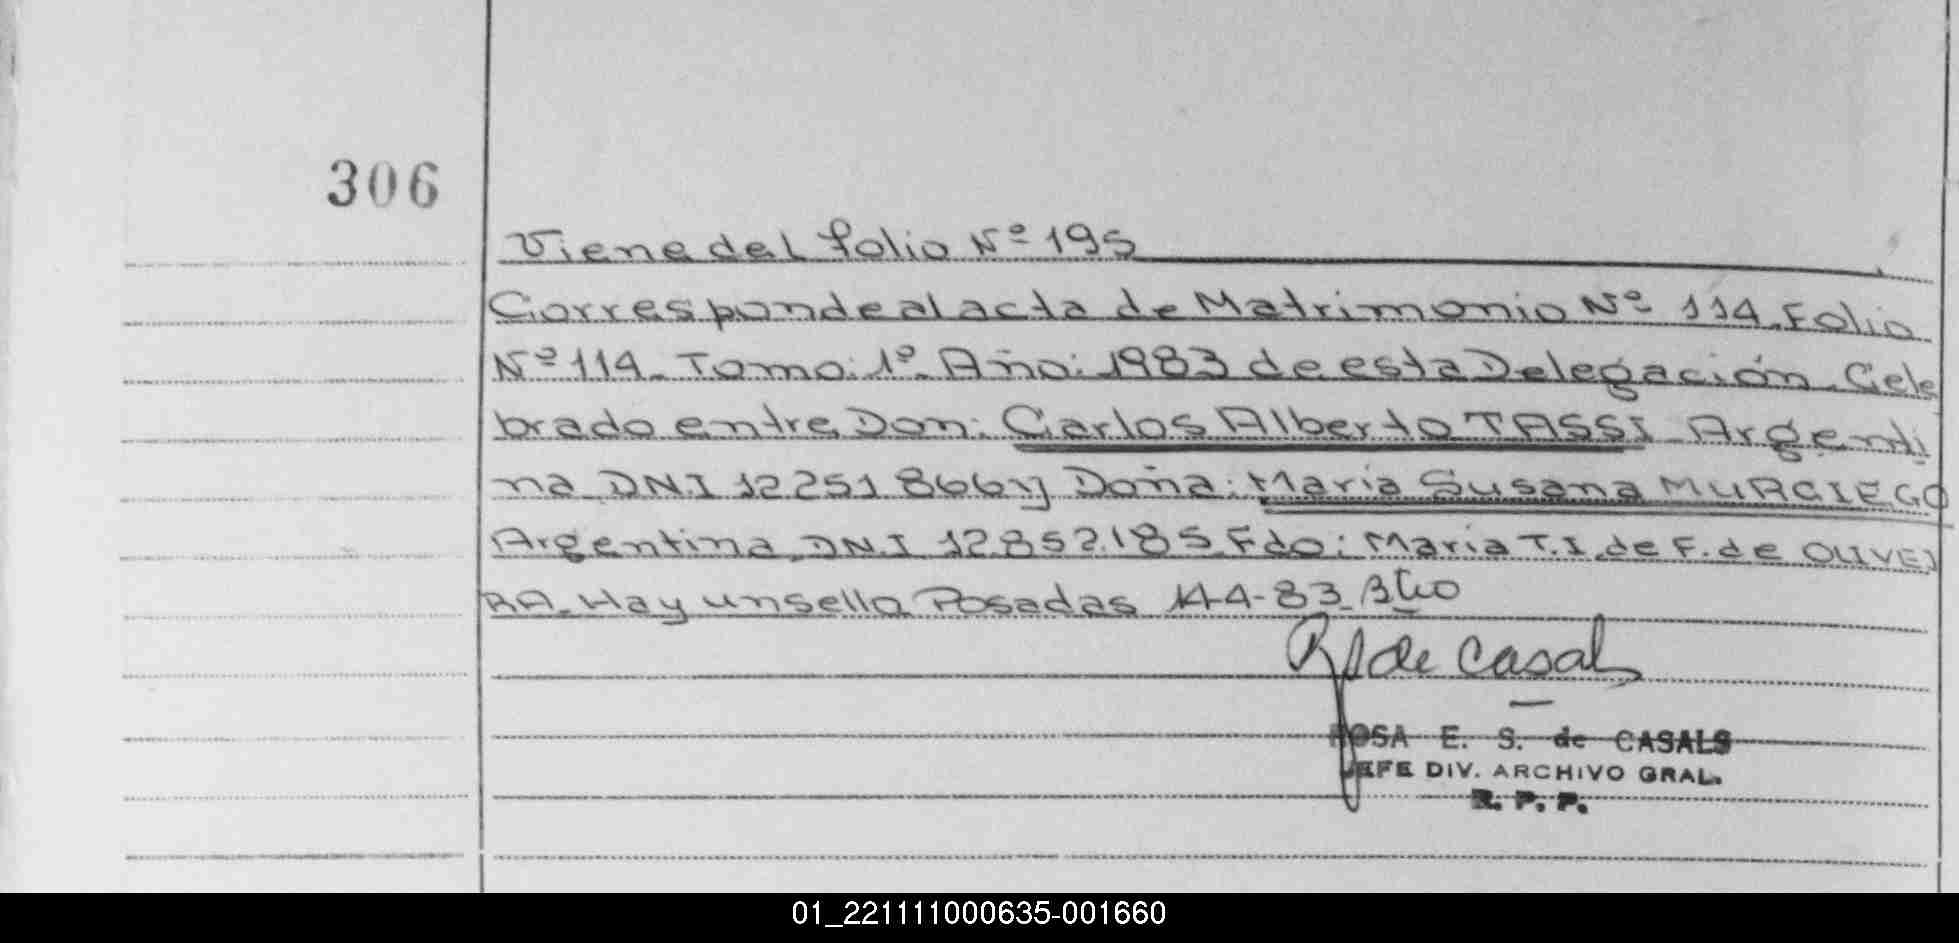 306
Viene del folio Nº 195
Corresponde al acta de Matrimonio Nº 114. Folio
Nº 114. Tomo: 1º. Año: 1983 de esta Delegación. Cele
brado entre Don: Carlos Alberto TASSI. Argenti
na DNI 12251866 y Doña: Maria Susana MURCIEGO
Argentina DNI 12.852.185. Fdo: Maria T.I. de F. de OLIVEI
RA. Hay un sello Posadas 14-4-83.
de Casals
ROSA E. S. de CASALS
JEFE DIV. ARCHIVO GRAL.
R. P. P.
01_221111000635-001660